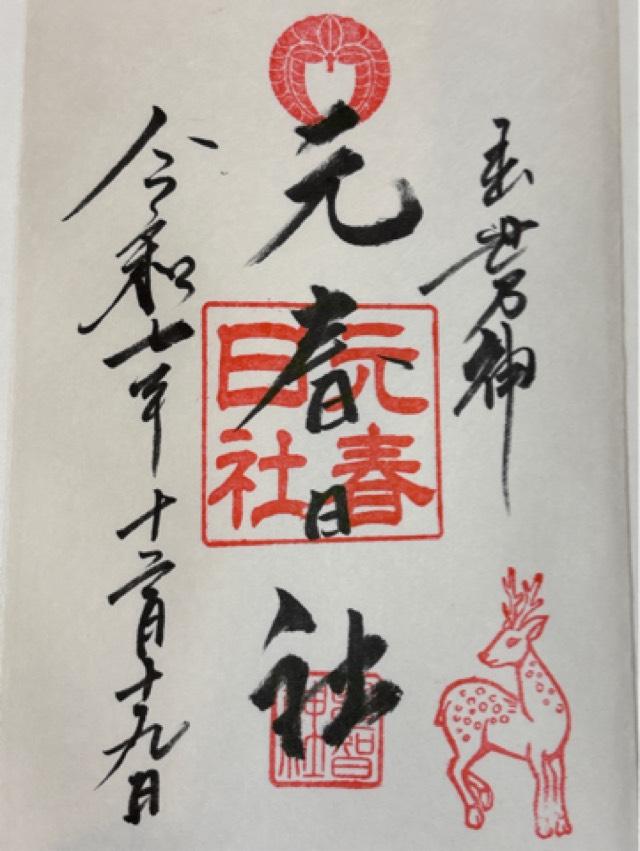 神
元春日社
元春日社
恩智神社
令和七年十二月十九日